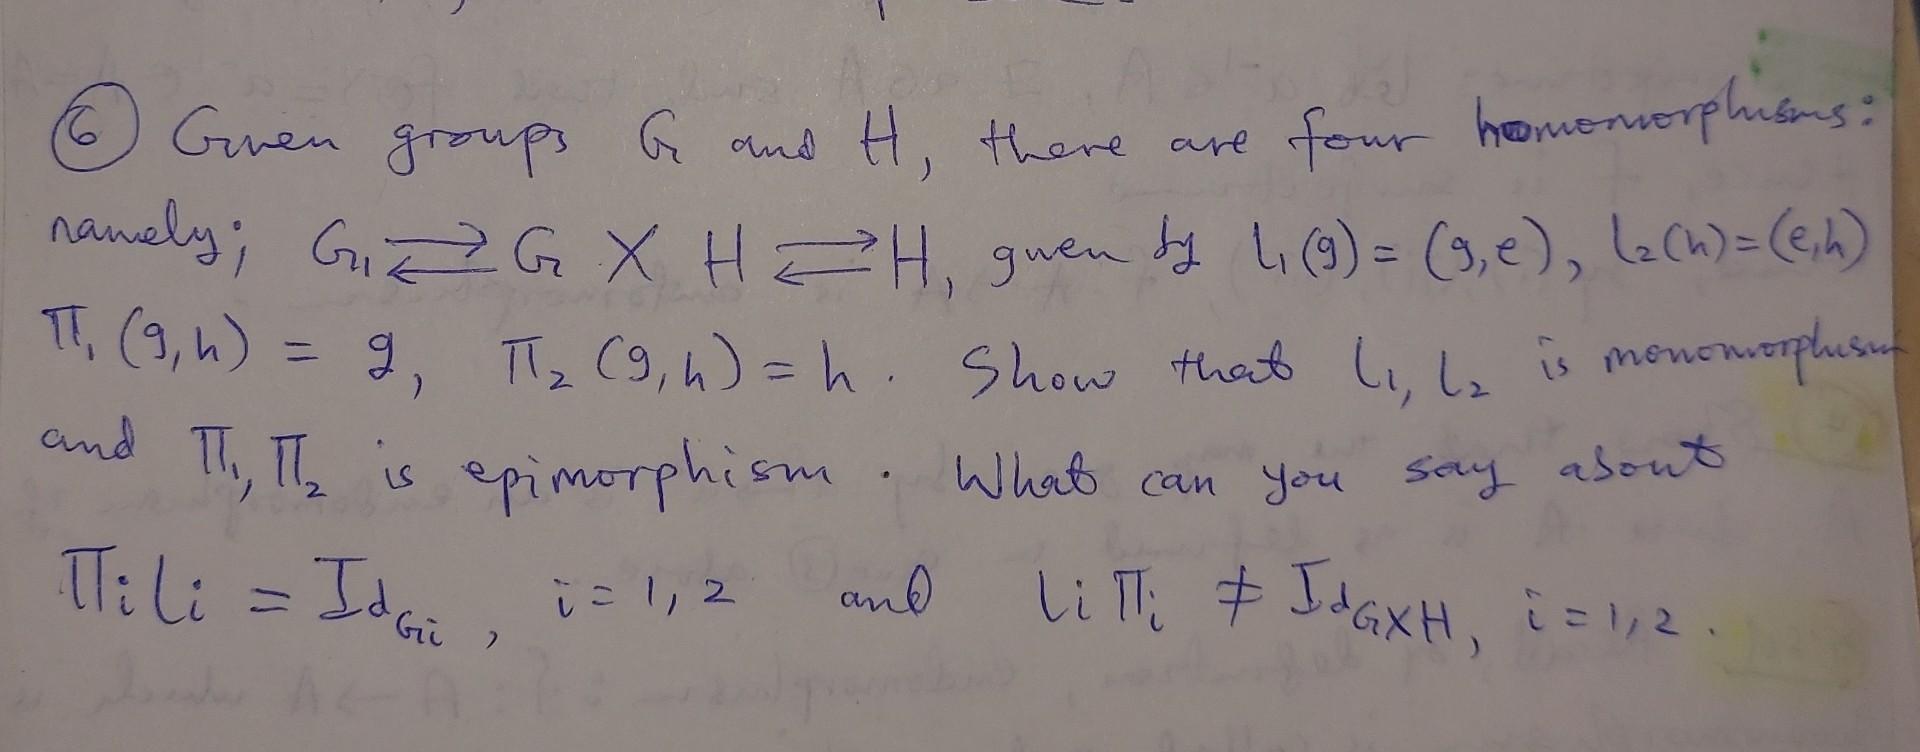 ⑥ Given groups G and H, there are four homomorphisms:
namely; G₁ ⇄ G X H ⇄ H, given by l₁(g) = (g,e), l₂(h)=(e,h)
π₁(g,h) = g, π₂(g,h) = h. Show that l₁, l₂ is monomorphism
and π₁, π₂ is epimorphism. What can you say about
πᵢlᵢ = Id_Gᵢ, i=1,2 and lᵢπᵢ ≠ Id_GXH, i=1,2.